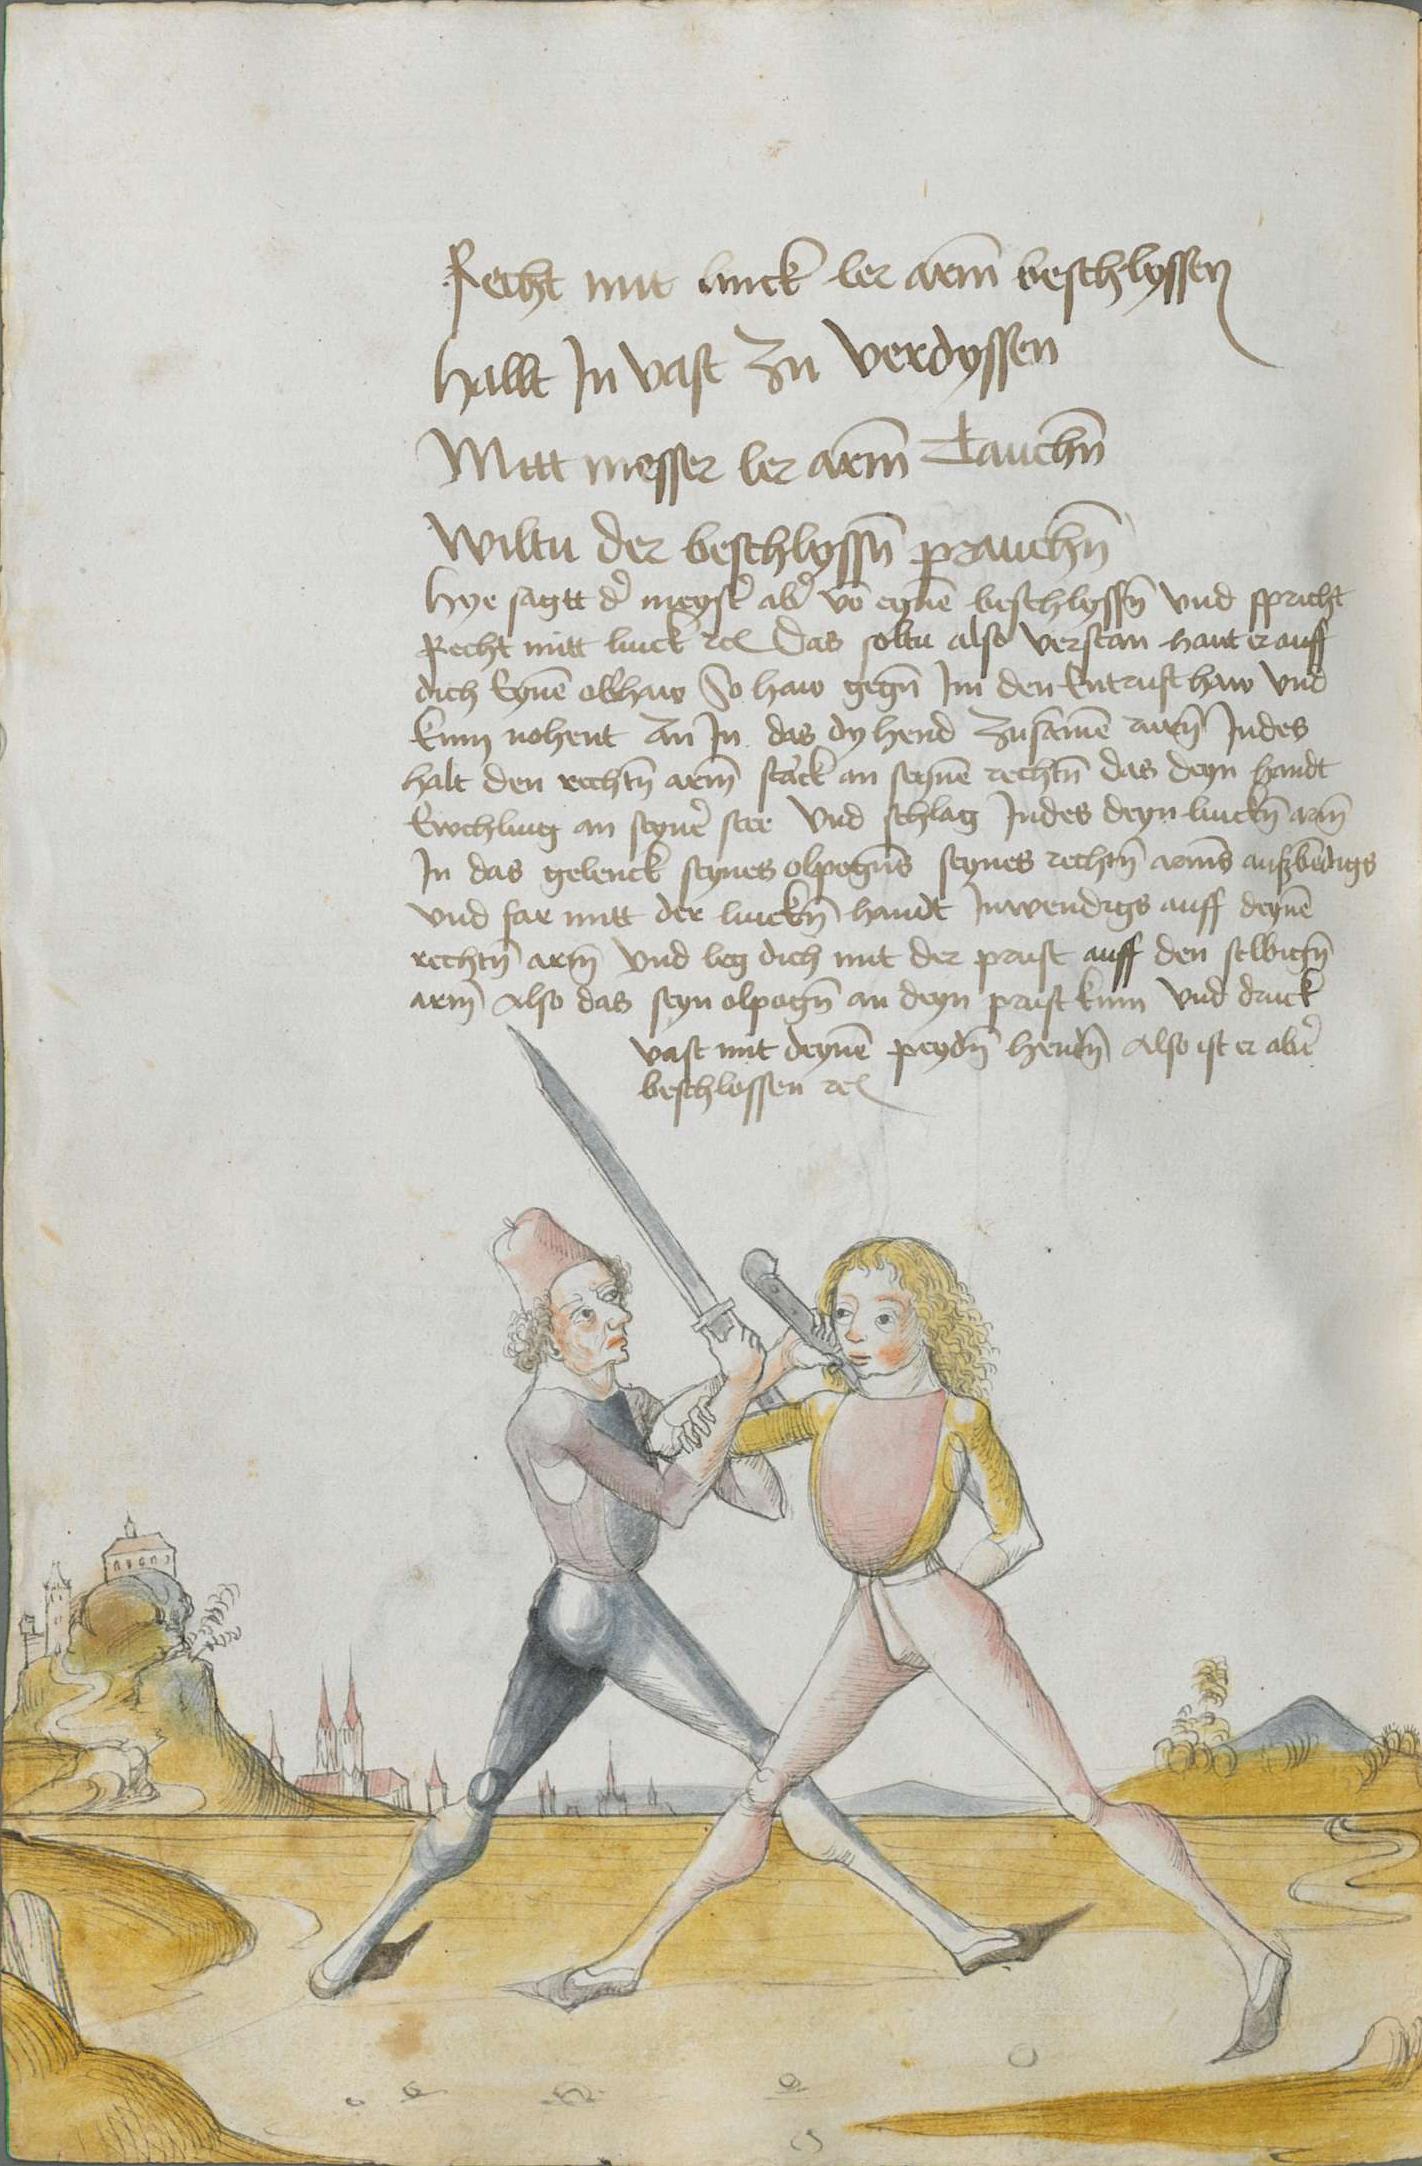 Recht mit linck ler arm̄ beschlyssen
hallt In vast zu verdyssen
Mitt messer ler arm̄ Tauchn̄
Wiltu der beschlyssn̄ prauchn̄
Hye sagtt d' meyst' ab' vō eynē beschlyssn̄ vnd spricht
Recht mitt linck ꝛc Das soltu also verstan haut er auff
dich Eynē obhaw So haw gegn̄ Im den Entrust haw vnd
kum nohent an In das dy hend zusamē rürn̄ Indes
halt den rechtn̄ arm̄ starck an seynē rechtn̄ das deyn handt
Ewchling an seyn' stee vnd schlag Indes deyn linckn̄ arm̄
In das gelenck seynes olpogn̄s seynes rechtn̄ arms außbendigs
vnd far mitt der linckn̄ handt Inwendigs auff deynē
rechtn̄ arm̄ vnd leg dich mit der prust auff den selbign̄
arm̄ Also das seyn olpogn̄ an deyn prust kum vnd druck
vast mit deynē peydn̄ hendn̄ Also ist er aber
beschlossen ꝛc